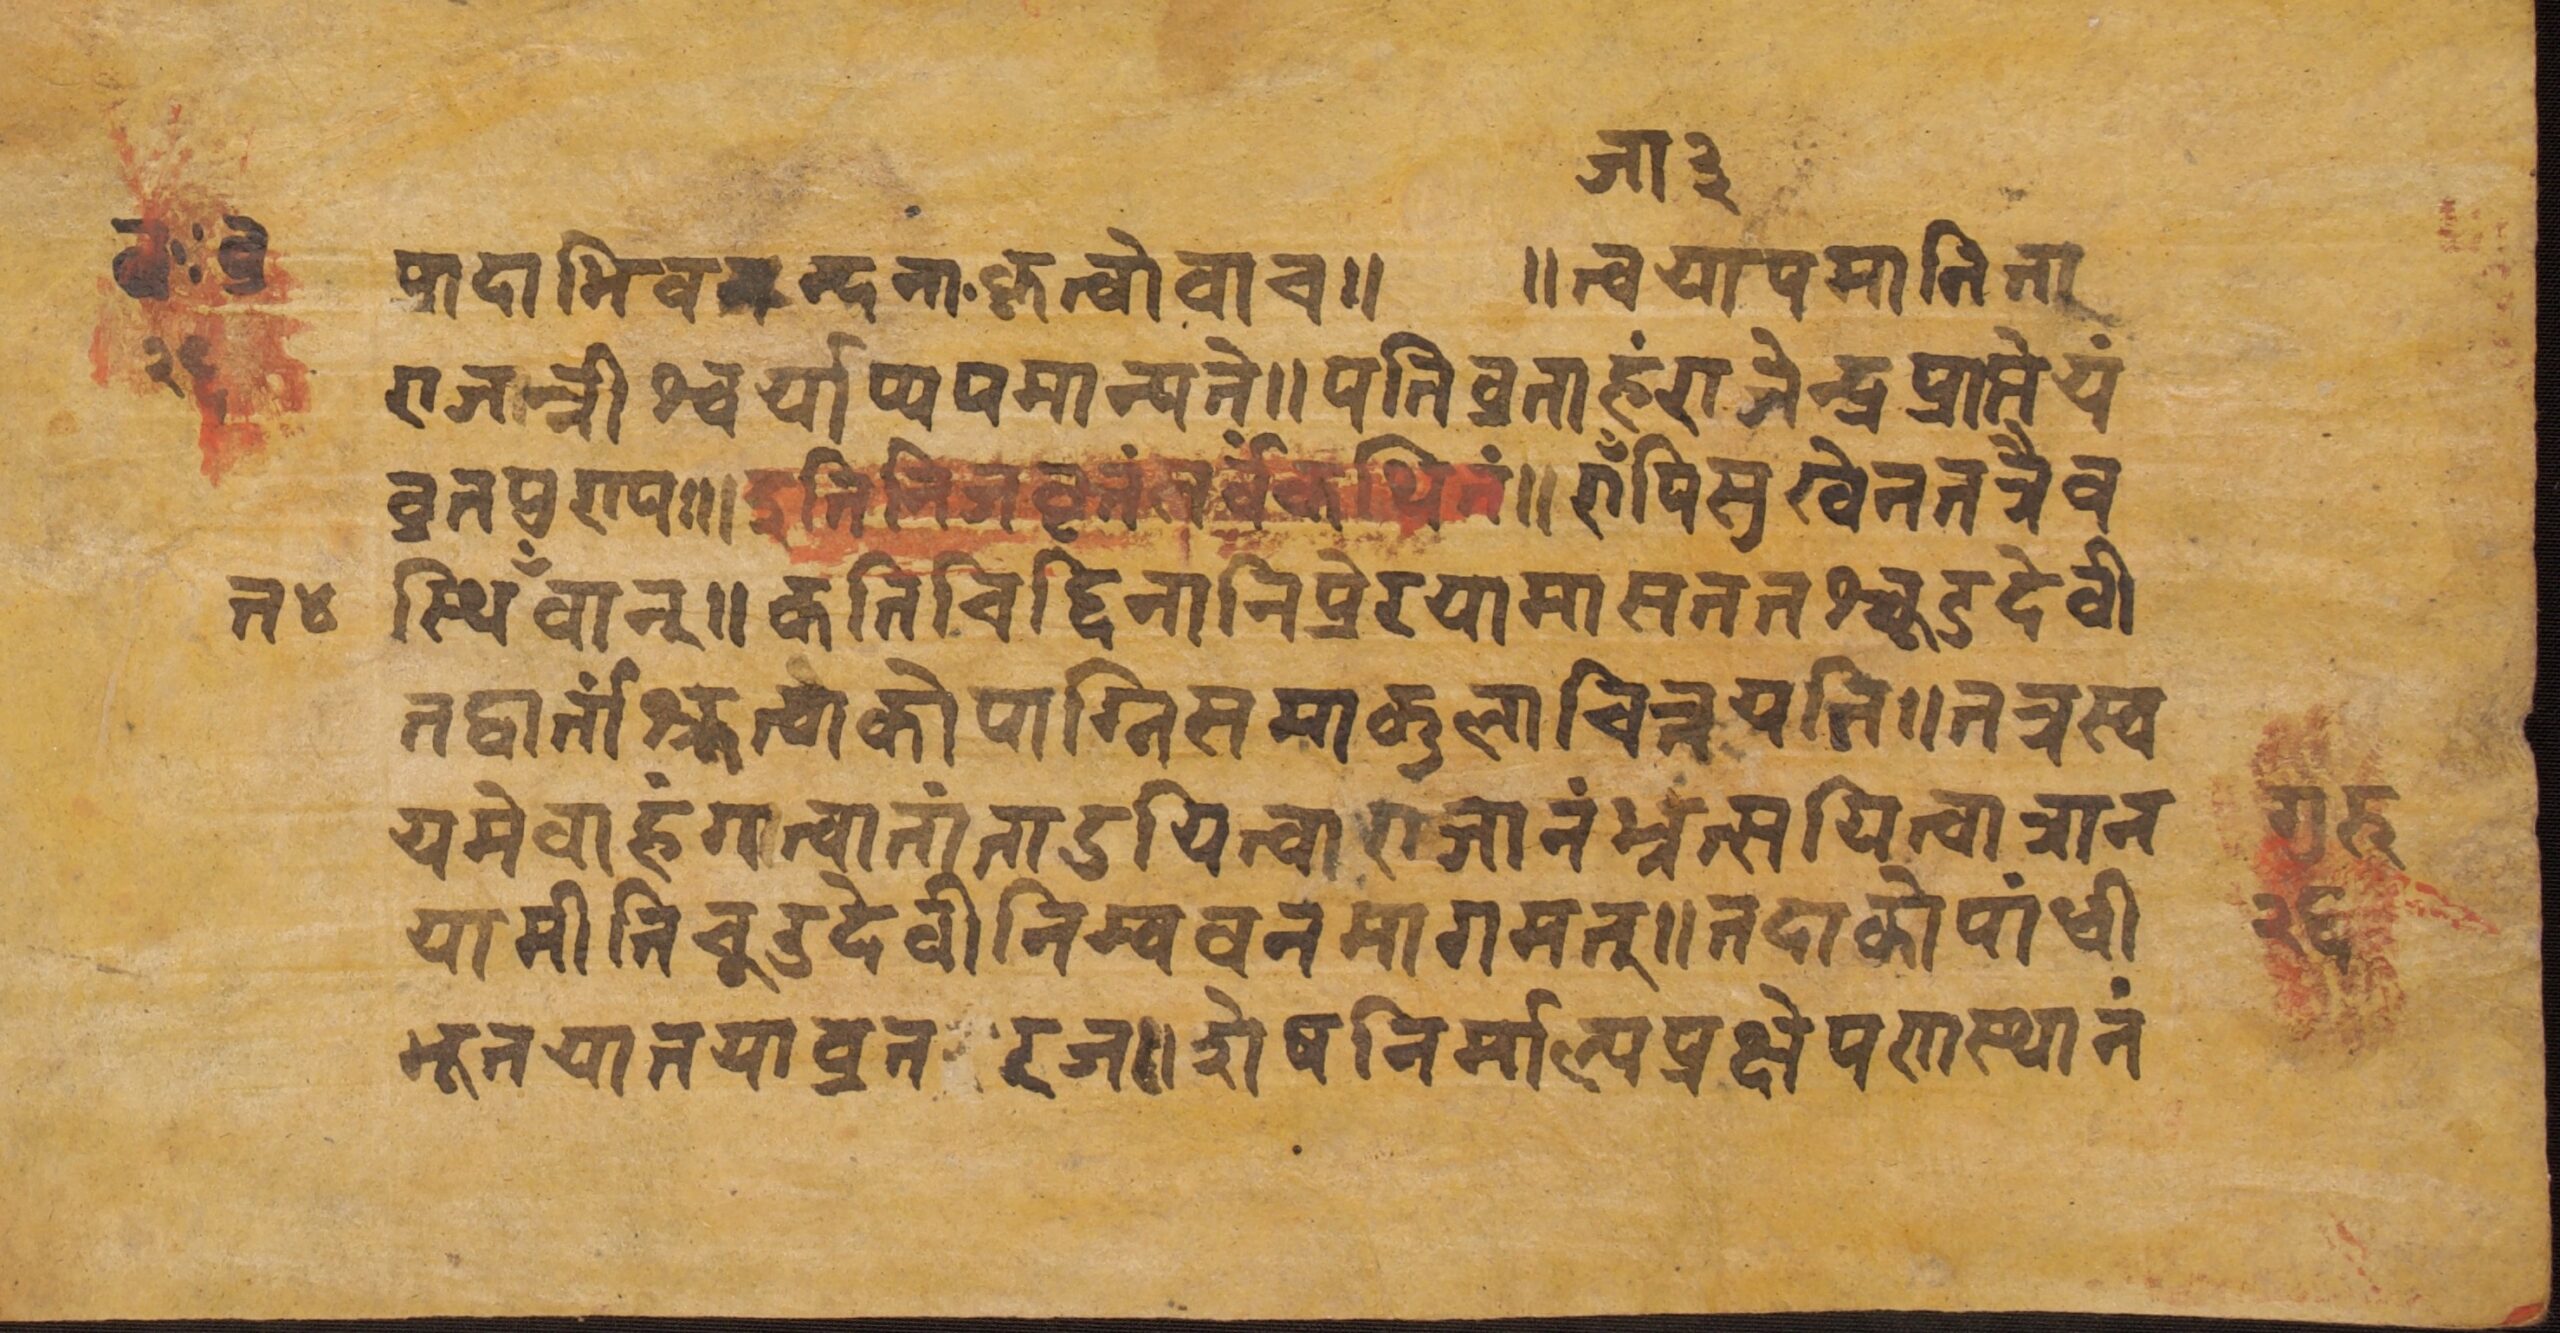 जा ३
पादाभिवन्दनाकृत्वोवाच॥ ॥त्वयापमानिता
राजन्त्रीश्वर्याप्यपमान्यते॥पतिव्रताहंराजेन्द्रप्राप्तेयं
व्रतप्ररापः॥॥इतिनिजवृतंसर्वंकथितं॥राँपिसुखेनतत्रैव
त४ स्थिँवान्॥कतिचिद्दिनानिप्रेरयामासततश्चूडदेवी
तद्वार्तांश्रुत्वाकोपाग्निसमाकुलाचिन्तयति॥तत्रस्व
यमेवाहंगत्वातांताडयित्वाराजानंभ्रत्सयित्वात्रान
यामीतिचूडदेवीनिम्बवनमागमत्॥तदाकोपांधी
भूतयातयाव्रत रज॥शेषनिर्माल्यप्रक्षेपणस्थानं
गृह
२६